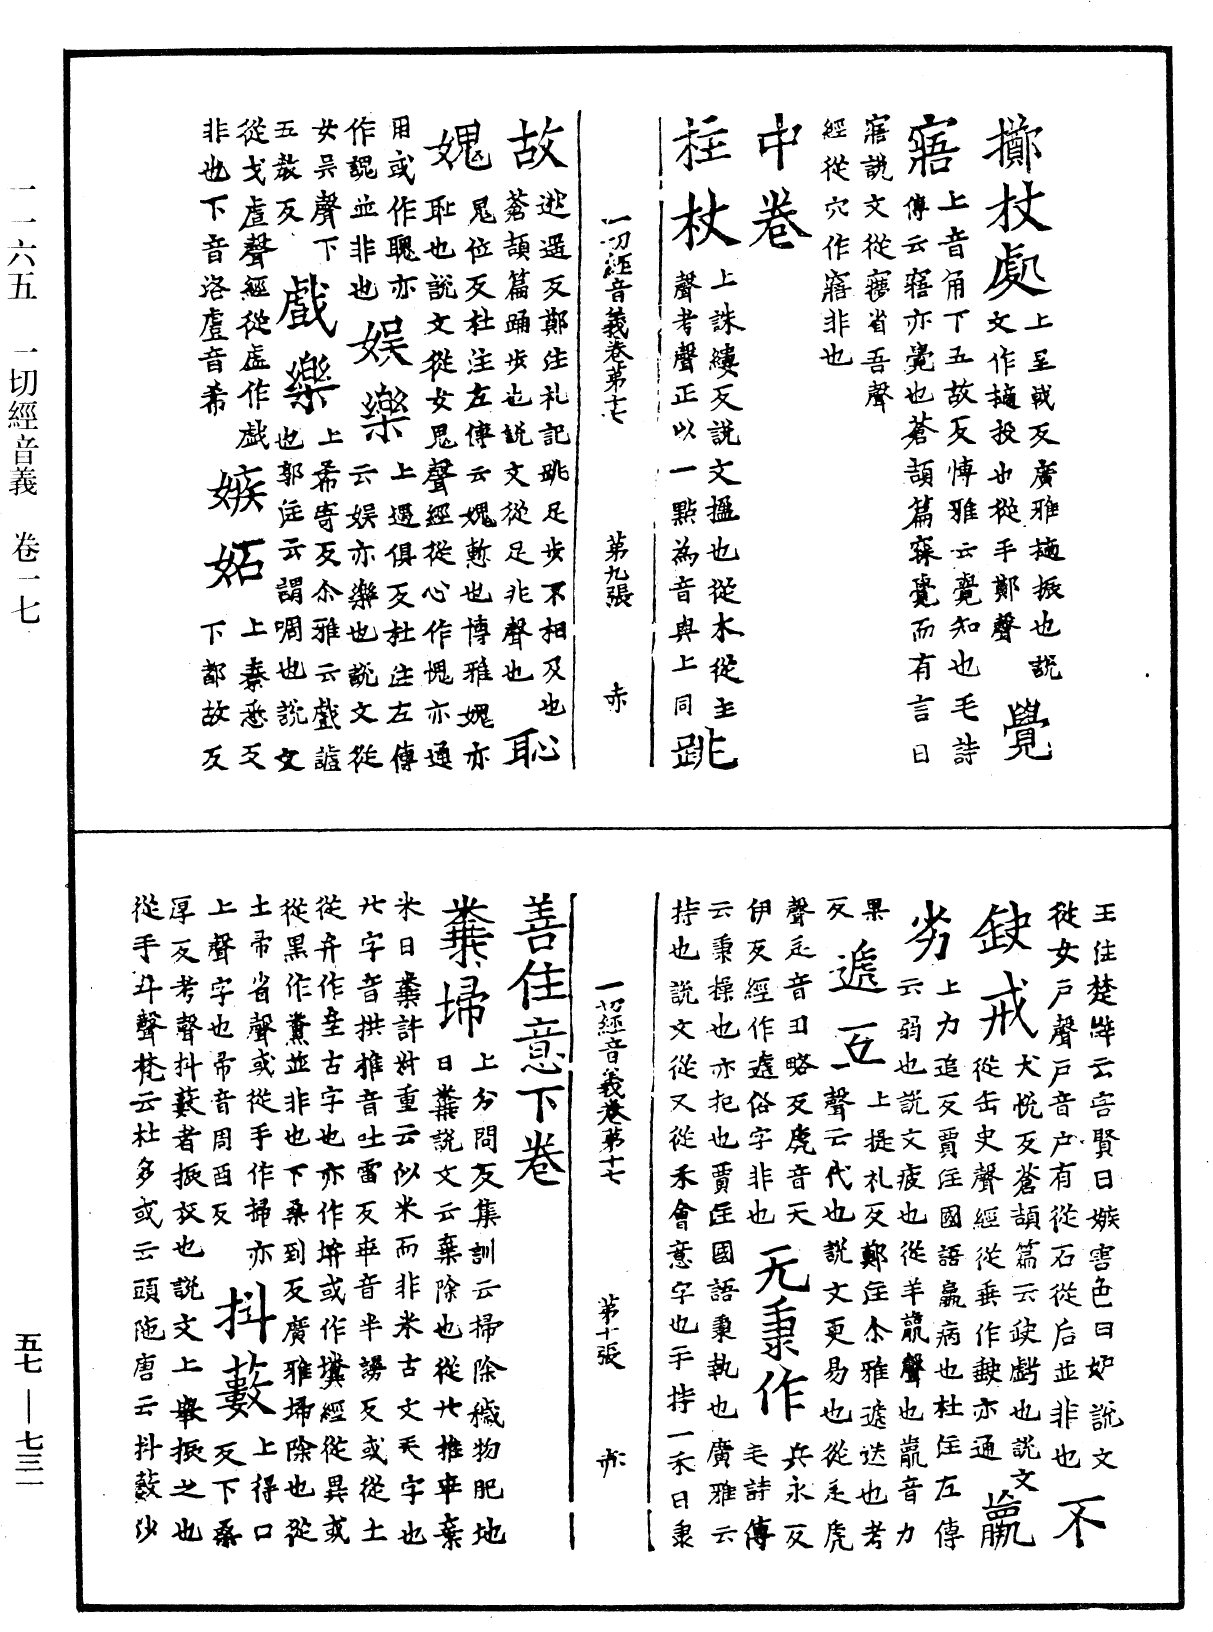 一一六五　一切經音義　卷一七
五七—七三一
擲杖處上呈戟反廣雅擿振也說
文作擿投也從手鄭聲覺
寤上音角下五故反博雅云覺知也毛詩
傳云寤亦覺也蒼頡篇寐覺而有言曰
寤說文從㝱省吾聲
經從穴作窹非也
中卷
拄杖上誅縷反說文搵也從木從主
聲考聲正以一點為音與上同跳
一切經音義卷第十七　第九張　赤
故逃遥反鄭注礼記跳足步不相及也
蒼頡篇踊步也說文從足非聲也恥
媿鬼位反杜注左傳云媿慙也博雅媿亦
恥也說文從女鬼聲經從心作愧亦通
用或作聭亦
作謉並非也娛樂上遇俱反杜注左傳
云娛亦樂也說文從
女吴聲下
五教反戲樂上希寄反尒雅云戲謔
也郭注云謂啁也說文
從戈䖒聲經從虛作戯
非也下音洛䖒音希嫉妬上秦悉反
下都故反
王注楚辝云害賢曰嫉害色曰妒說文
從女戶聲戶音户有從石從后並非也不
缺戒犬悅反蒼頡篇云缺虧也說文
從缶史聲經從垂作𡙇亦通羸
劣上力追反賈注國語羸病也杜注左傳
云弱也說文疲也從羊𣎆聲也𣎆音力
果
反遞互上提礼反鄭注尒雅遞迭也考
聲云代也說文更易也從辵虒
聲辵音丑略反虒音天
伊反經作遆俗字非也无秉作兵永反
毛詩傳
云秉操也亦把也賈注國語秉執也廣雅云
持也說文從又從禾會意字也手持一禾曰秉
一切經音義卷第十七　第十張　赤
善住意下卷
糞埽上分問反集訓云掃除穢物肥地
曰糞說文云棄除也從廾推𠦒棄
米曰糞許慎重云似米而非米古文𠔉字也
廾字音拱推音吐雷反𠦒音半謗反或從土
從弁作𡊅古字也亦作坋或作㙻經從異或
從黑作黨並非也下桑到反廣雅埽除也從
土帚省聲或從手作掃亦
上聲字也帚音周酉反抖藪上得口
反下桑
厚反考聲抖藪者振敖也說文上舉振之也
從手斗聲梵云杜多或云頭陁唐云抖藪沙